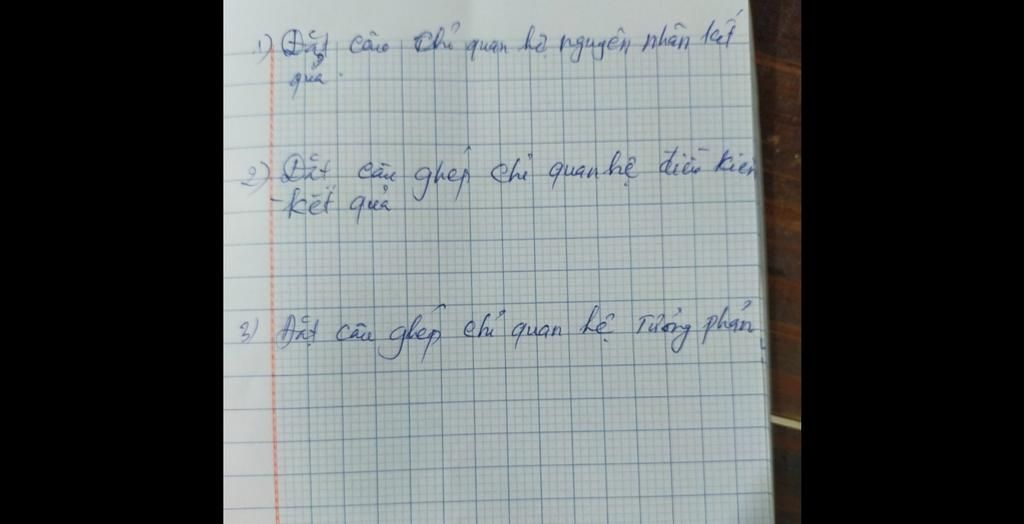 1) Đặt câu chỉ quan hệ nguyên nhân kết
quả.
2) Đặt câu ghép chỉ quan hệ điều kiện
- kết quả
3) Đặt câu ghép chỉ quan hệ tương phản